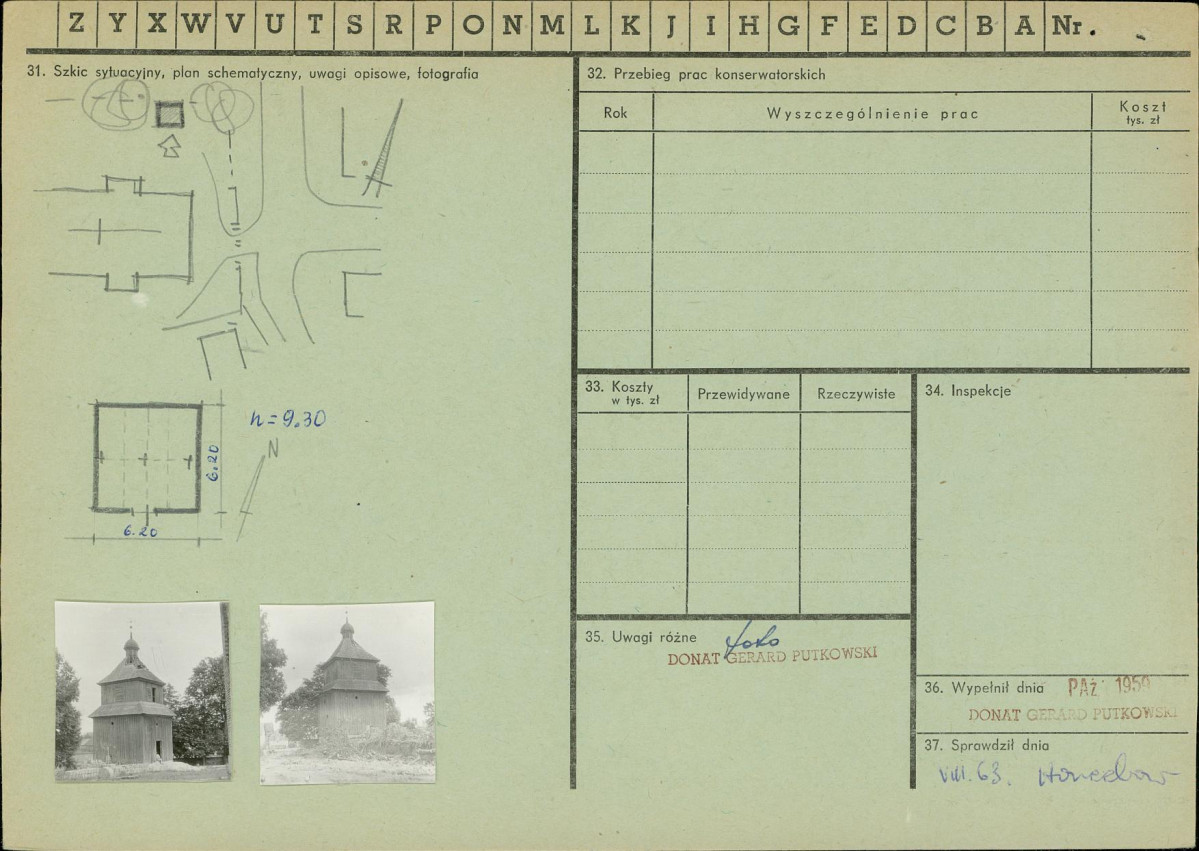 Z Y X W V U T S R P O N M L K J I H G F E D C B A Nr.
31. Szkic sytuacyjny, plan schematyczny, uwagi opisowe, fotografia
h = 9.30
N
6.20
6.20
32. Przebieg prac konserwatorskich
Rok
Wyszczególnienie prac
Koszt
tys. zł
33. Koszty
w tys. zł
Przewidywane
Rzeczywiste
34. Inspekcje
35. Uwagi różne
foto
DONAT GERARD PUTKOWSKI
36. Wypełnił dnia PAŹ 1959
DONAT GERARD PUTKOWSKI
37. Sprawdził dnia
VIII. 63.